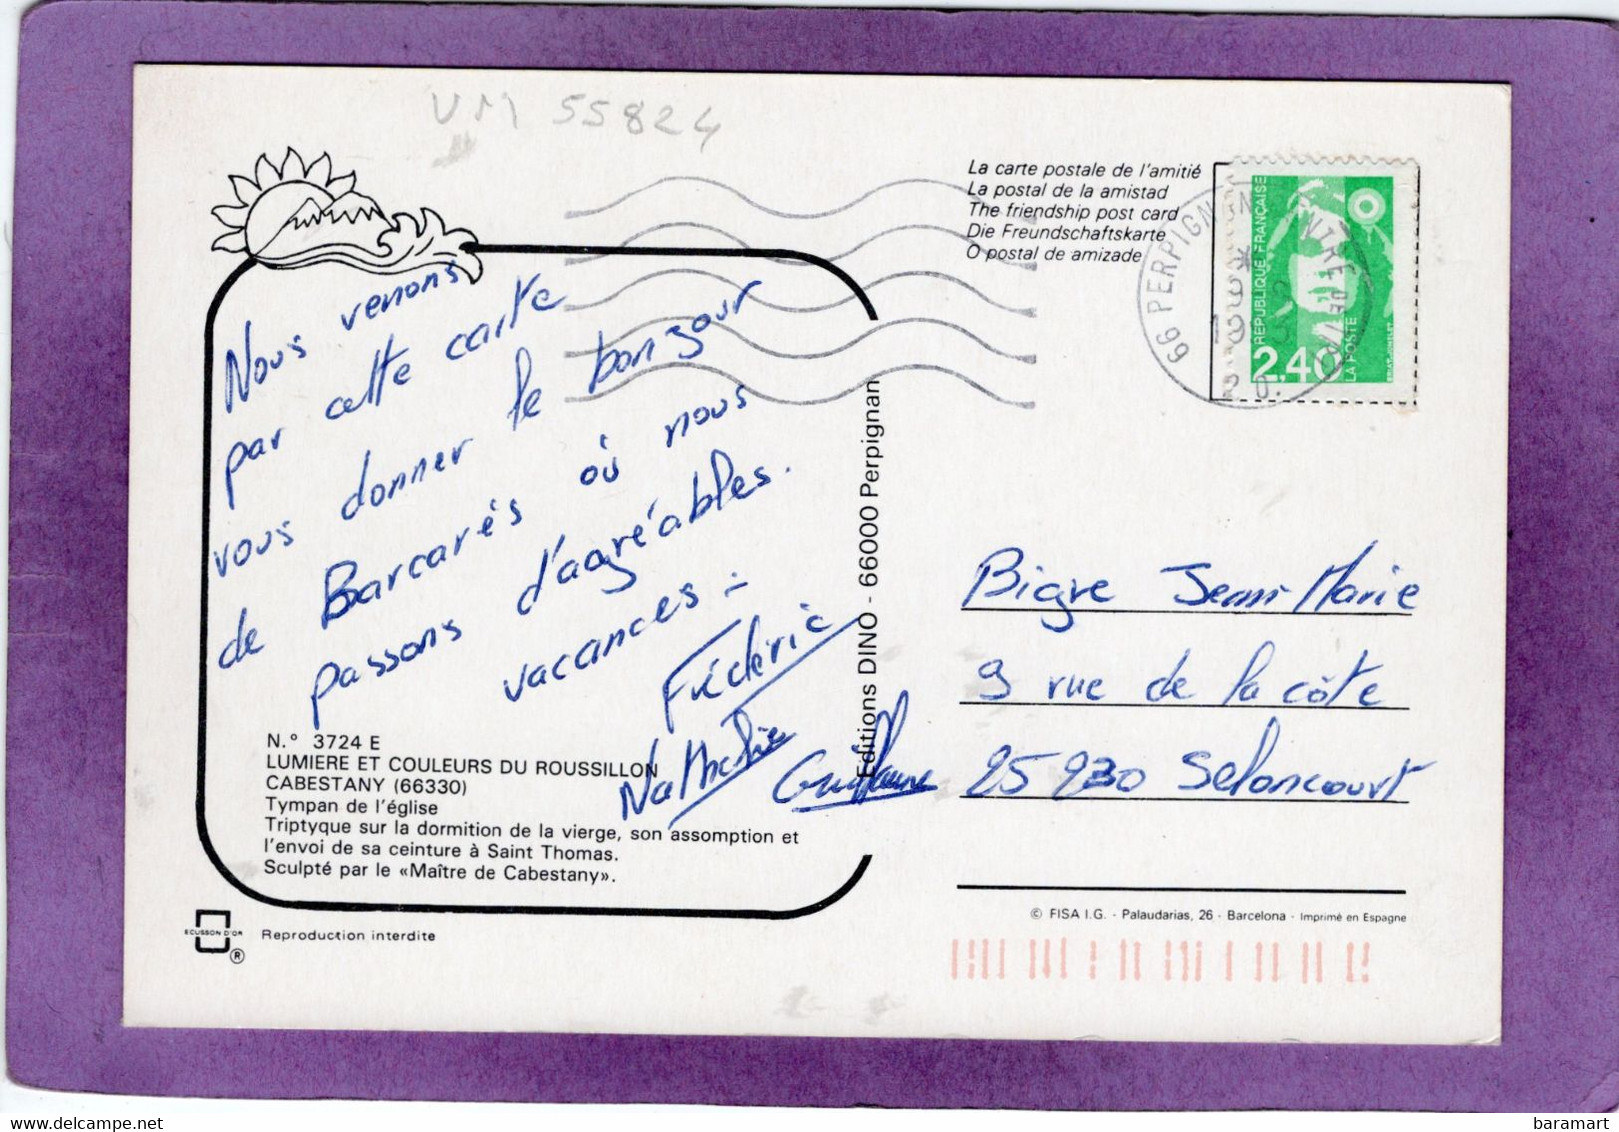 VM 55824
La carte postale de l'amitié
La postal de la amistad
The friendship post card
Die Freundschaftskarte
O postal de amizade
66 PERPIGNAN
REPUBLIQUE FRANÇAISE
2,40
LA POSTE
Nous venons
par cette carte
vous donner le bonjour
de Barcarés où nous
passons d'agréables
vacances.
Frédéric
Nathalie
Guillaume
N.° 3724 E
LUMIERE ET COULEURS DU ROUSSILLON
CABESTANY (66330)
Tympan de l'église
Triptyque sur la dormition de la vierge, son assomption et
l'envoi de sa ceinture à Saint Thomas.
Sculpté par le «Maître de Cabestany».
ECUSSON D'OR
®
Reproduction interdite
Editions DINO - 66000 Perpignan
Bigre Jean-Marie
9 rue de la côte
25 230 Seloncourt
© FISA I.G. - Palaudarias, 26 - Barcelona - Imprimé en Espagne
baramart